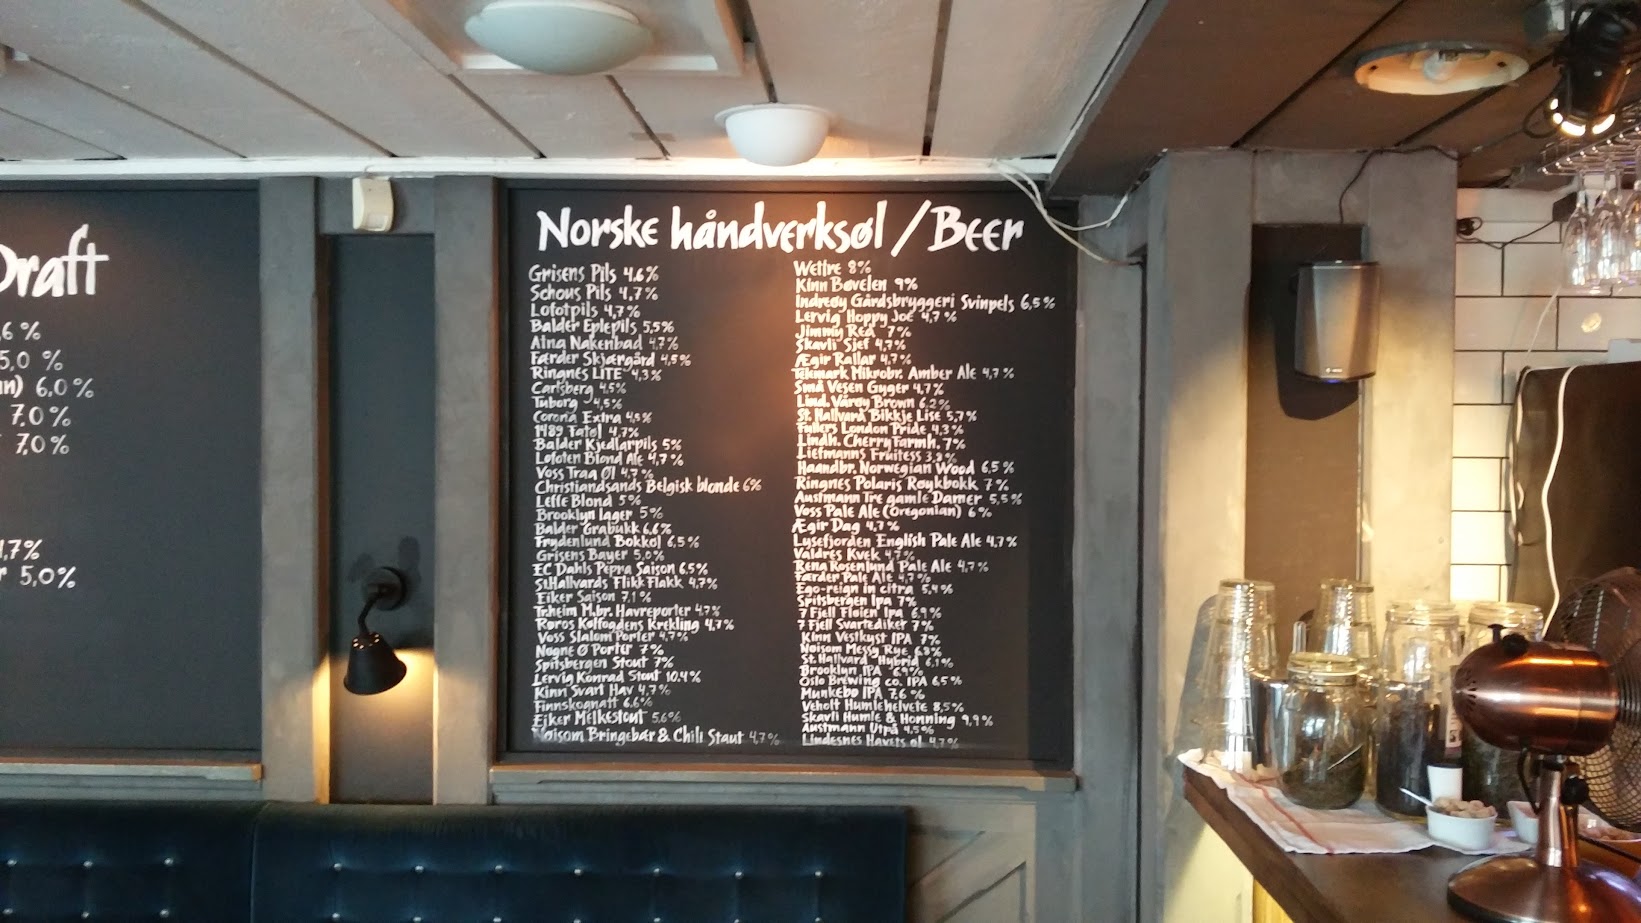 Draft
,6 %
5,0 %
nn) 6,0 %
7,0 %
7,0 %
4,7%
r 5,0%
Norske håndverksøl / Beer
Grisens Pils 4.6%
Schous Pils 4,7%
Lofotpils 4,7%
Balder Eplepils 5,5%
Atna Nakenbad 4,7%
Færder Skjærgård 4,5%
Ringnes LITE 4,3%
Carlsberg 4.5%
Tuborg 4,5%
Corona Extra 4,5%
1989 Fatøl 4,7%
Balder Kjedlarpils 5%
Lofoten Blond Ale 4,7%
Voss Traa Øl 4,7%
Christiandsands Belgisk blonde 6%
Leffe Blond 5%
Brooklyn lager 5%
Balder Gråbukk 6,6%
Frydenlund Bokkøl 6,5%
Grisens Bayer 5,0%
EC Dahls Pepra Saison 6,5%
St.Hallvards Flikk Flakk 4,7%
Eiker Saison 7,1%
Tr.heim M.br. Havreporter 4,7%
Røros Kølfogdens Krekling 4,7%
Voss Slalom Porter 4,7%
Nøgne Ø Porter 7%
Spitsbergen Stout 7%
Lervig Konrad Stout 10.4%
Kinn Svart Hav 4,7%
Finnskognatt 6.6%
Eiker Melkestout 5.6%
Nøisom Bringebær & Chili Staut 4,7%
Wettre 8%
Kinn Bøvelen 9%
Inderøy Gårdsbryggeri Svinpels 6,5%
Lervig Hoppy Joe 4,7%
Jimmy Red 7%
Skavli Sjef 4,7%
Ægir Rallar 4,7%
Telemark Mikrobr. Amber Ale 4,7%
Små Vesen Gyger 4,7%
Lind. Vårøy Brown 6,2%
St. Hallvard Bikkje Lise 5,7%
Fullers London Pride 4,3%
Lindh. Cherry Farmh. 7%
Liefmanns Fruitess 3,8%
Haandbr. Norwegian Wood 6,5%
Ringnes Polaris Røykbokk 7%
Austmann Tre gamle Damer 5,5%
Voss Pale Ale (Oregonian) 6%
Ægir Dag 4,7%
Lysefjorden English Pale Ale 4,7%
Valdres Kvek 4,7%
Rena Rosenlund Pale Ale 4,7%
Færder Pale Ale 4,7%
Ego-reign in citra 5,4%
Spitsbergen Ipa 7%
7 Fjell Fløien Ipa 6,9%
7 Fjell Svartediket 7%
Kinn Vestkyst IPA 7%
Nøisom Messy Rye 6.8%
St. Hallvard "Hybrid 6,1%
Brooklyn IPA 6,9%
Oslo Brewing co. IPA 6,5%
Munkebo IPA 7.6%
Veholt Humlehelvete 8,5%
Skavli Humle & Honning 9,9%
Austmann Utpå 4,5%
Lindesnes Havets øl 4,7%